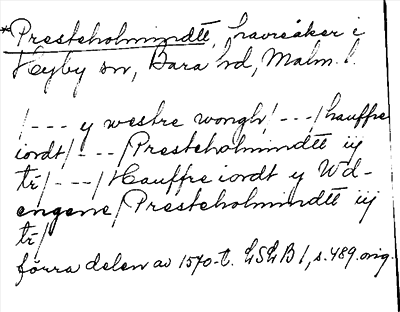 *Presteholmindtt, havreåker i
Hyby sn, Bara hd, Malm. l.
/--- y westre wongh/ ---/hauffre
iordt/ ---/Presteholmindtt iij
tr/ ---/Hauffre iordt y Wd-
engene/Presteholmindtt iij
tr/
förra delen av 1570-t. LSLB 1, s. 489. orig.